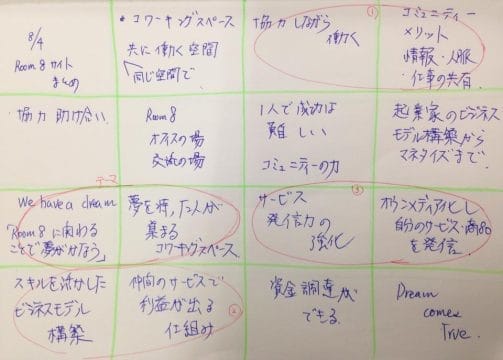 8/4
Room8サイト
まとめ
* コワーキングスペース
共に働く空間
同じ空間で
①
協力しながら
働く
コミュニティー
メリット
情報・人脈
・仕事の共有
協力 助け合い
Room8
オフィスの場
交流の場
1人で成功は
難しい
コミュニティーの力
起業家のビジネス
モデル構築から
マネタイズまで。
テーマ
We have a dream
「Room8に関わる
ことで夢がかなう」
夢を持った人が
集まる
コワーキングスペース。
③
サービス
発信力の
強化
オウンメディア化し
自分のサービス・商品
を発信
スキルを活かした
ビジネスモデル
構築
②
仲間のサービスで
利益が出る
仕組み
資金調達が
できる。
Dream
comes
True.